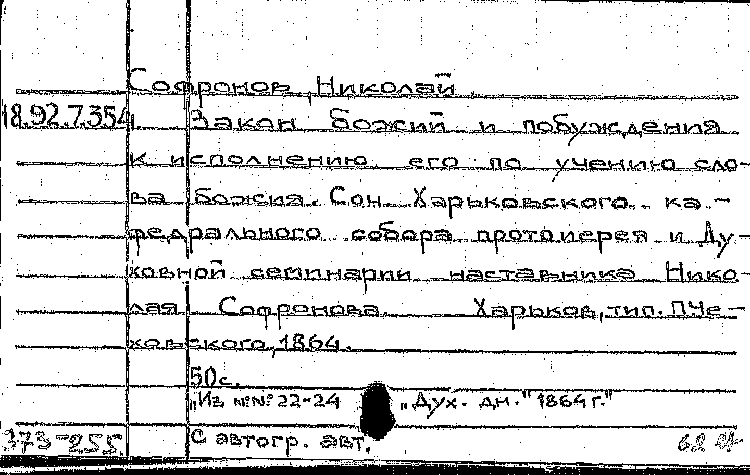 Софронов, Николай
18.92.7.354. Закон божий и побуждения
к исполнению его по учению сло-
ва божия. Соч. Харьковского ка-
федрального собора протоиерея и Ду-
ховной семинарии наставника Нико-
лая Софронова. Харьков, тип. П.Че-
ховского, 1864.
50с.
"Из №№ 22-24 "Дух. дн." 1864 г."
373-255. С автогр. авт.